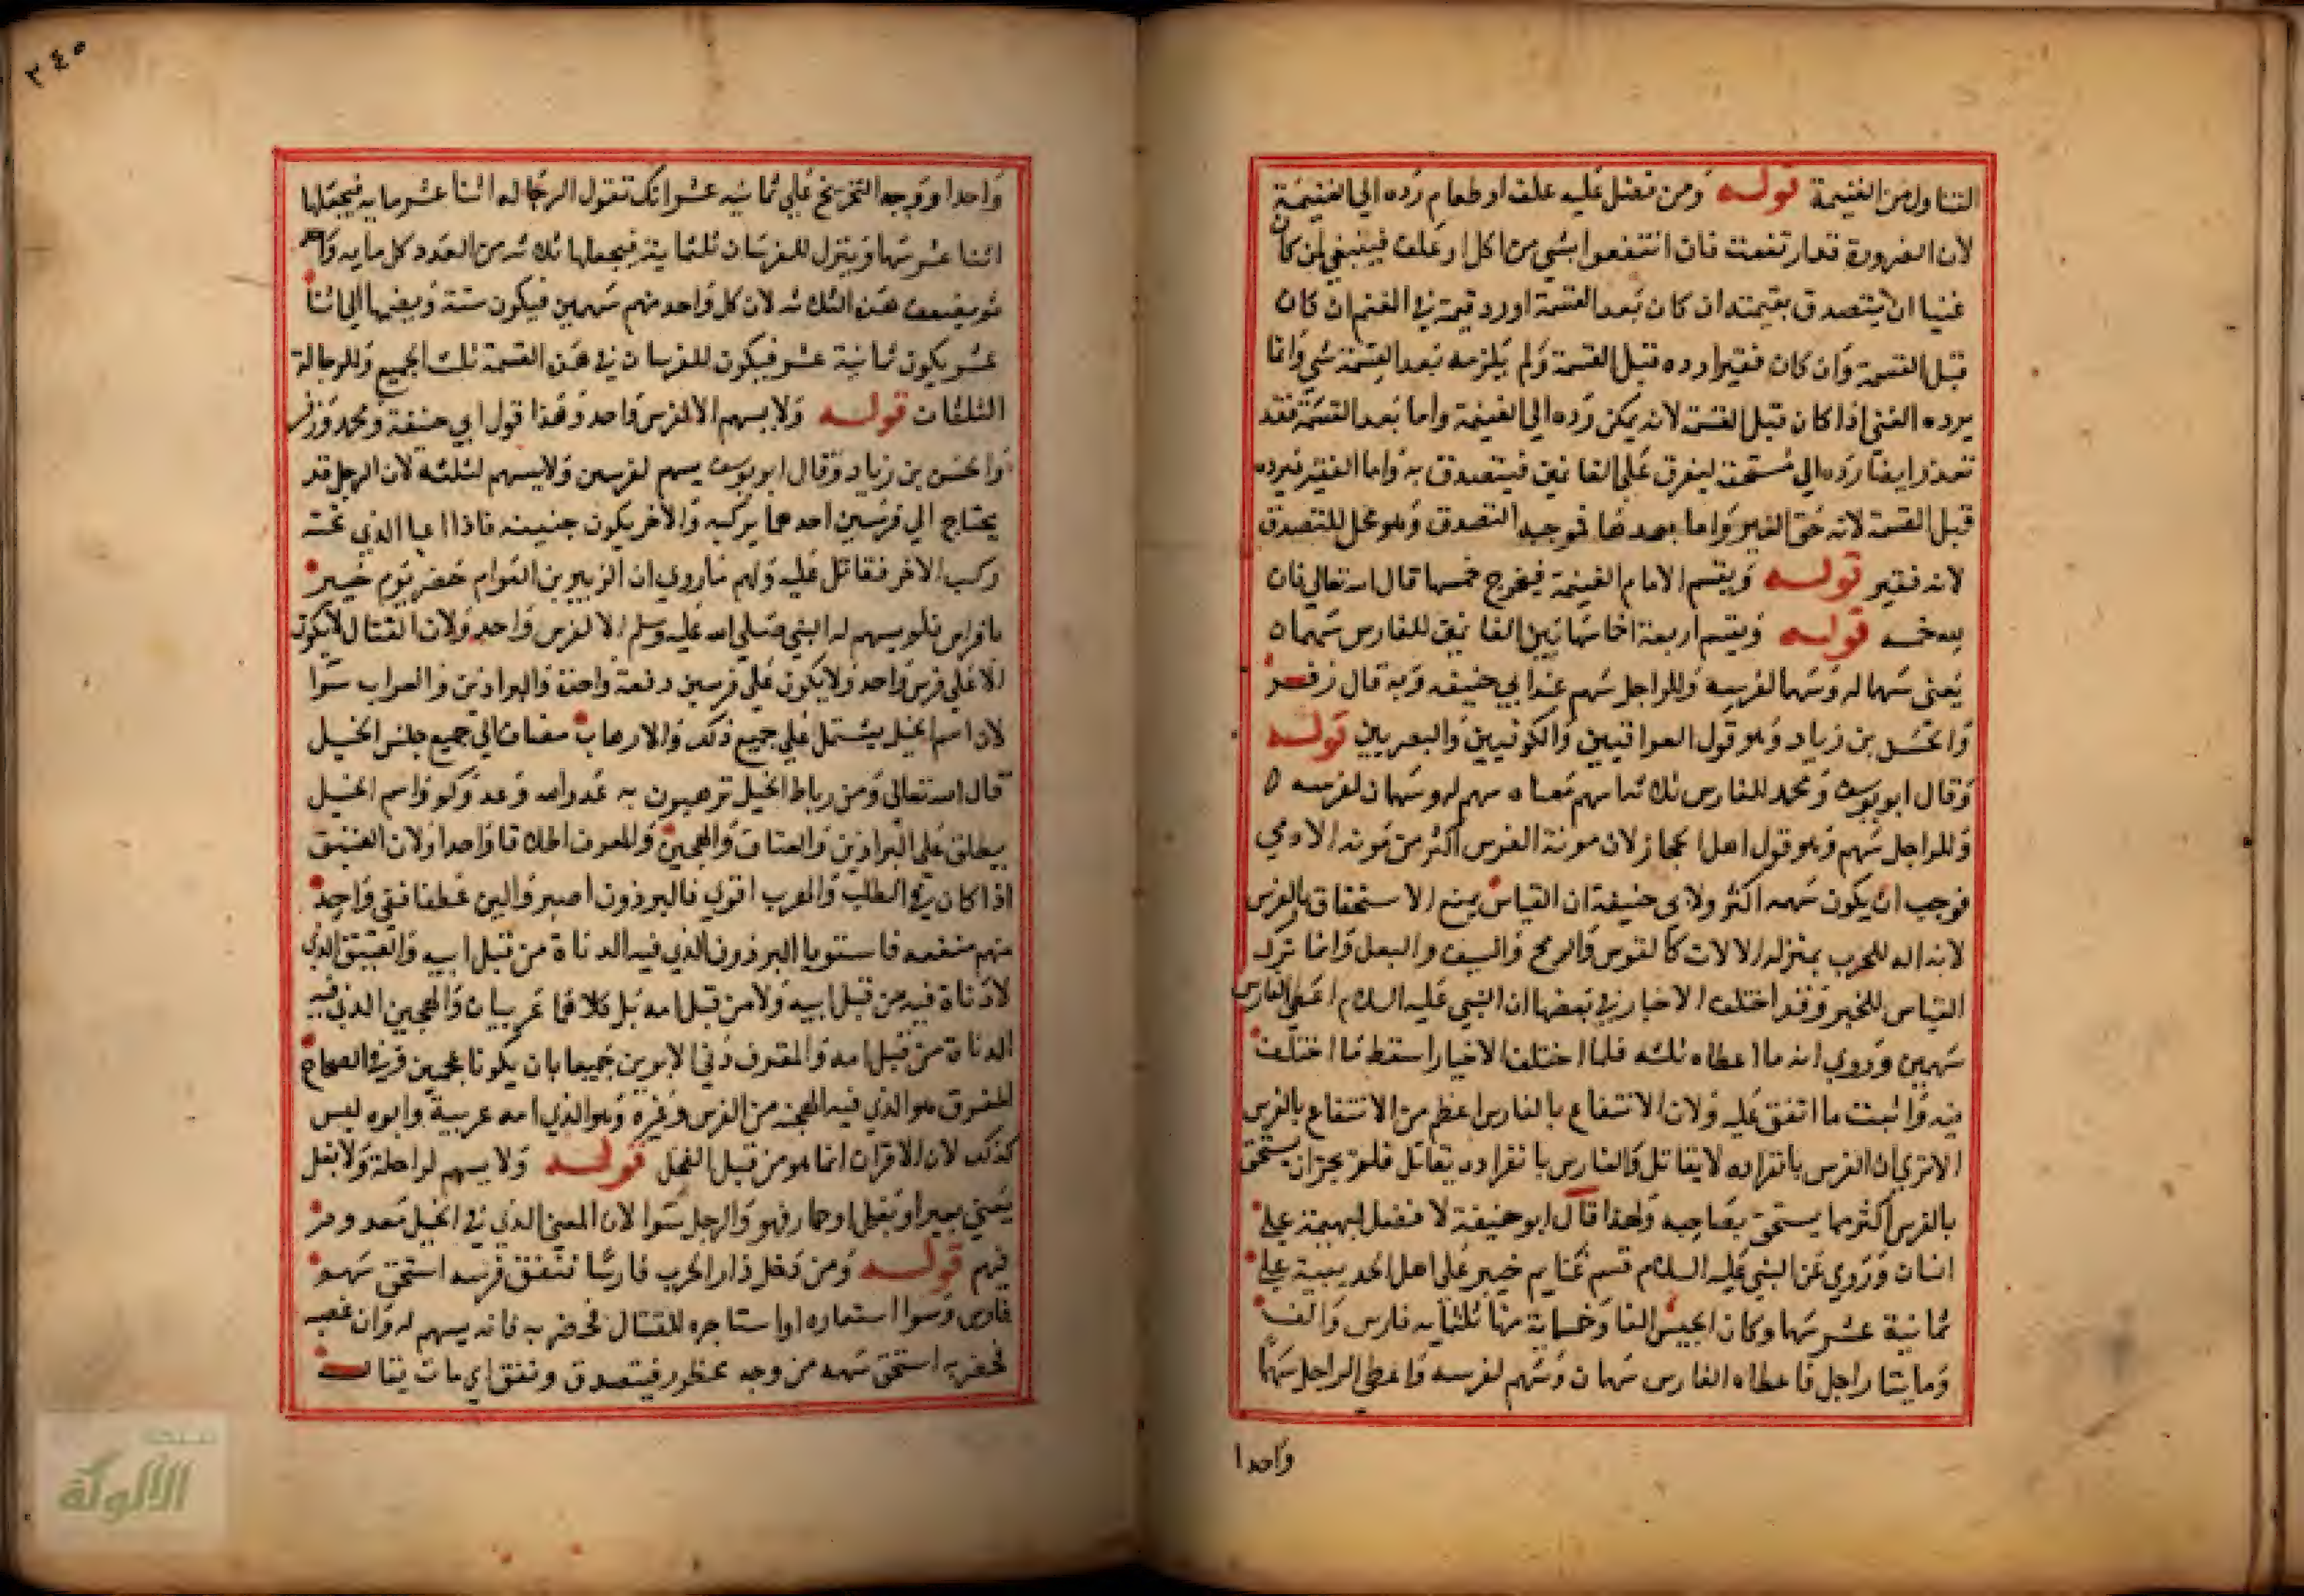 التناول من الغنيمة قوله ومن فضل عليه علف او طعام رده الي الغنيمة
لان الضرورة قد ارتفعت فان انتفعوا بشي من اكل او علف فينبغي لمن كان
غنيا ان يتصدق بقيمته ان كان بعد القسمة او رد قيمته في الغنم ان كان
قبل القسمة وان كان فقيرا رده قبل القسمة ولم يلزمه بعد القسمة شي وانما
يرده الغني اذا كان قبل القسمة لانه يمكن رده الي الغنيمة واما بعد القسمة فقد
تعذر ايضا رده الي مستحقه ليفرق علي الغانمين فيتصدق به واما الفقير فيرده
قبل القسمة لانه حق الغير واما بعدها فوجبه التصدق وهو محل للتصدق
لانه فقير قوله ويقسم الامام الغنيمة فيخرج خمسها قال الله تعالي فان
لله خمسه قوله ويقسم اربعة اخماسها بين الغانمين للفارس سهمان
يعني سهما له وسهما لفرسه وللراجل سهم عند ابي حنيفه وبه قال زفر
والحسن بن زياد وهو قول العراقيين والكوفيين والبصريين قوله
وقال ابو يوسف ومحمد للفارس ثلاثه اسهم معناه سهم له وسهمان لفرسه ه
وللراجل سهم وهو قول اهل الحجاز لان مونة الفرس اكثر من مونه الادمي
فوجب ان يكون سهمه اكثر ولابي حنيفة ان القياس يمنع الاستحقاق بالفرس
لانه اله للحرب بمنزله الالات كالقوس والرمح والسيف والبغل وانما ترك
القياس للخبر وقد اختلف الاخبار في بعضها ان النبي عليه السلام اعطي الفارس
سهمين وروي انه ما اعطاه ثلثه فلما اختلف الاخبار اسقط ما اختلف
فيه واثبت ما اتفق عليه ولان الانتفاع بالفارس اعظم من الانتفاع بالفرس
الا تري ان الفرس بانفراده لا يقاتل والفارس بانفراده يقاتل فلم يجز ان يستحق
بالفرس اكثر مما يستحق بصاحبه ولهذا قال ابو حنيفة لا فضل لبهيمة علي
انسان وروي عن النبي عليه السلام قسم غنايم خيبر علي اهل الحديبية علي
ثمانية عشر سهما وكان الجيش الفا وخسماية منها ثلثمايه فارس والف
ومايتا راجل فاعطاه الفارس سهمان وسهم لفرسه واعطي الراجل سهما
واحدا
٣٤٥
واحدا ووجه التخريج علي ثمانيه عشر انك تقول الرجاله اثنا عشر مايه فيجعلها
اثنا عشر سهما وينزل للفرسان ثلثماية فيجعلها ثلاثه من العدد كل مايه
ثم يضعف هذه الثلاثه لان كل واحد منهم سهمين فيكون ستة ويضمها الي اثنا
عشر يكون ثمانية عشر فيكون للفرسان في هذه القسمة ثلث الجميع وللرجالة
الثلثان قوله ولا يسهم الا لفرس واحد وهذا قول ابي حنيفة ومحمد وزفر
والحسن بن زياد وقال ابو يوسف يسهم لفرسين ولا يسهم لثلثه لان الرجل قد
يحتاج الي فرسين احدهما يركبه والاخر يكون جنيبه فاذا اعيا الذي تحته
ركب الاخر فقاتل عليه ولهم ما روي ان الزبير بن العوام حضر يوم خيبر
بافراس فلم يسهم له النبي صلي الله عليه وسلم الا لفرس واحد ولان القتال لا يكون
الا علي فرس واحد ولا يكون علي فرسين دفعة واحدة والبراذين والعراب سوا
لان اسم الخيل يشتمل علي جميع ذلك والارهاب مضاف الي جميع جنس الخيل
قال الله تعالي ومن رباط الخيل ترهبون به عدو الله وعدوكم واسم الخيل
يطلق علي البراذين والعتاق والهجين والمعرف اطلاقا واحدا ولان العتيق
اذا كان في الطلب والهرب اقوي فالبرذون اصبر والين عطفا ففي واحد
منهم منفعه فاستويا البرذون الذي فيه الدناة من قبل ابيه والعتيق الذي
لا دناة فيه من قبل ابيه ولا من قبل امه بل كلاهما عربيان والهجين الذي فيه
الدناة من قبل امه والمقرف دني الابوين جميعا بان يكونا عجميين وفي الصحاح
المقرف هو الذي فيه الهجنه من الفرس وغيره وهو الذي امه عربية وابوه ليس
كذلك لان الاقراف انما هو من قبل الفحل قوله ولا يسهم لراحلة ولا بغل
يعني بعيرا او بغل او حمار فهو والرجل سوا لان المعني الذي في الخيل معدوم
فيهم قوله ومن دخل دار الحرب فارسا فنفق فرسه استحق سهم
فارس وسوا استعاره او استاجره للقتال فحضر به فانه يسهم له وان غصبه
فحضر به استحق سهمه من وجه محظور فيتصدق ونفق اي مات يقال